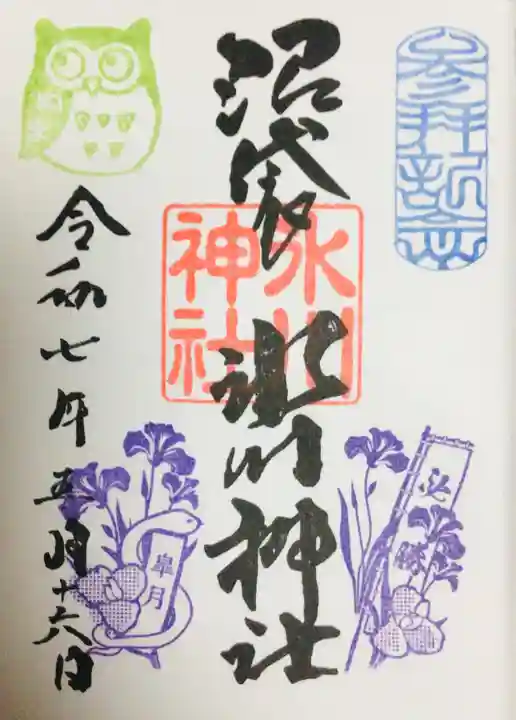 参拝記念
沼袋
氷川神社
氷川
神社
必勝
令和七年五月十六日
皐月